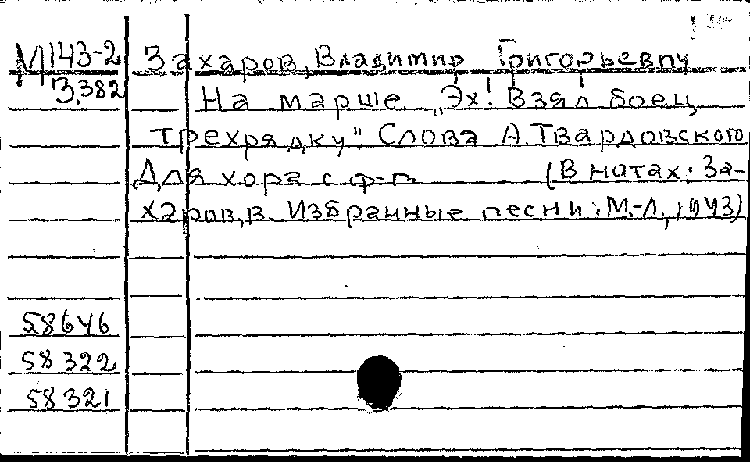 М 143-2 Захаров, Владимир Григорьевич
З.382 На марше „Эх! Взял боец
трехрядку". Слова А. Твардовского
Для хора с ф-п. (В нотах: За-
харов, В. Избранные песни. М.-Л., 1943)
58646
58322
58321